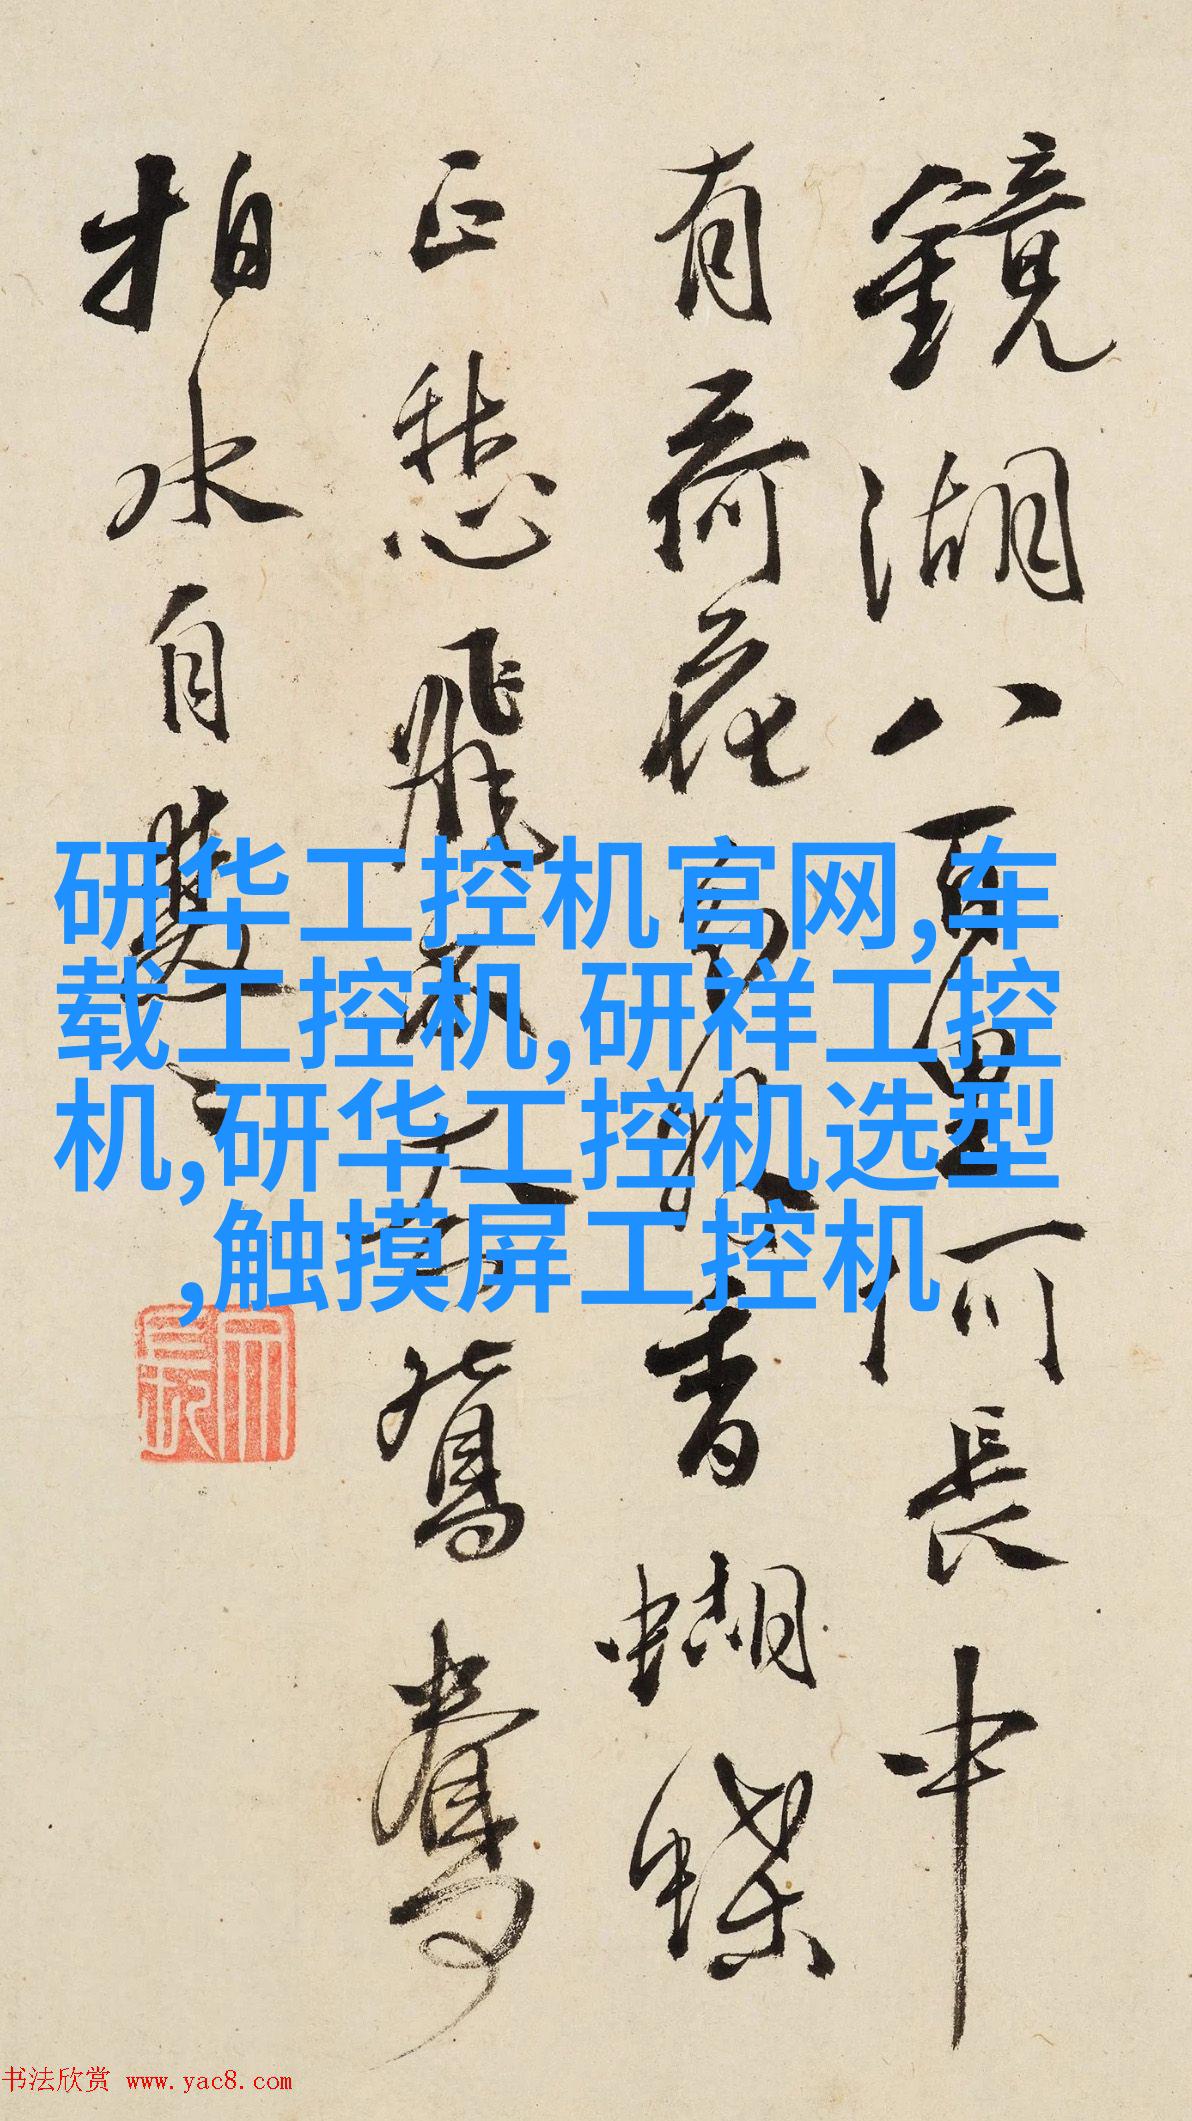 鏡湖八百里何長中
有荷花香蝴蝶
正愁飛不鴛鴦
拍水自雙
研华工控机官网,车
载工控机,研祥工控
机,研华工控机选型
,触摸屏工控机
书法欣赏 www.yac8.com